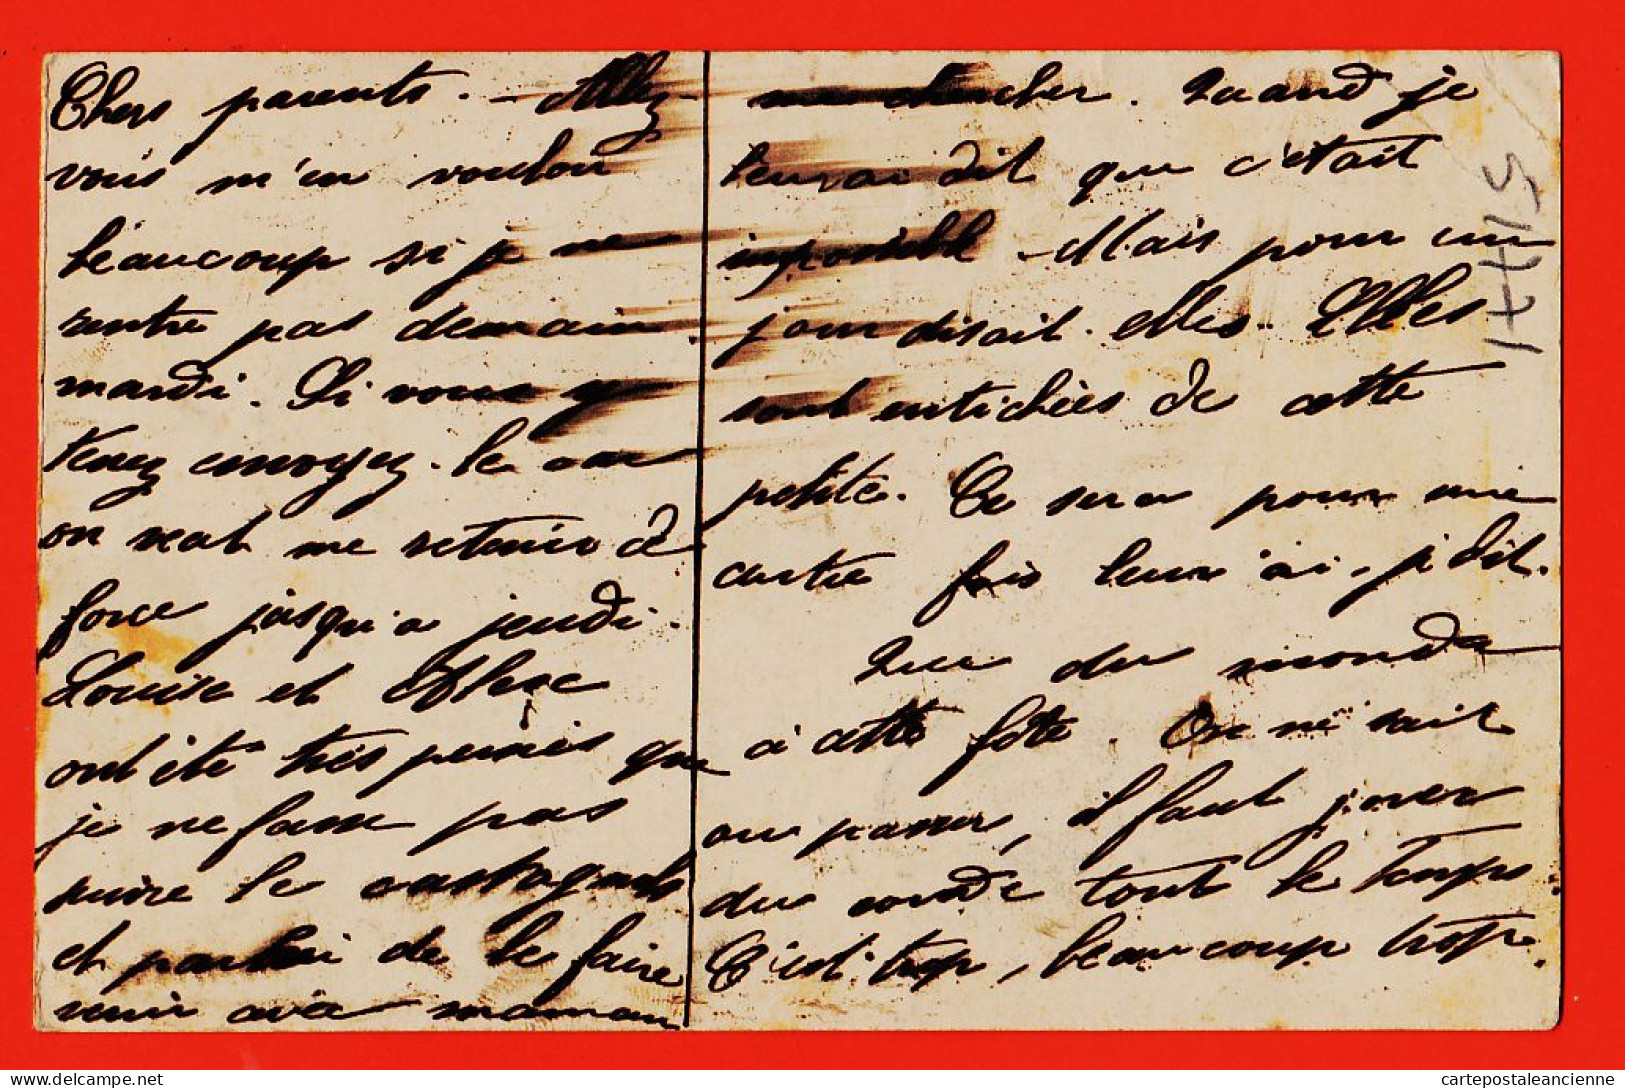 Chers parents. – Allez
vous m'en vouloir
beaucoup si je ne
rentre pas demain
mardi. Si vous y
tenez envoyez-le car
on veut me retenir de
force jusqu'a jeudi.
Louise et
ont été très peinées que
je ne fasse pas
suivre le
et de le faire
venir avec maman
Quand je
leur ai dit que c'était
impossible – Mais pour un
jour disait-elles. Elles
sont entichées de cette
petite. Ce sera pour une
autre fois leur'ai-je dit.
Que du monde
à cette fête. On ne sait
ou passer, il faut jouer
du coude tout le temps.
C'est trop, beaucoup trop.
cartepostaleancienne